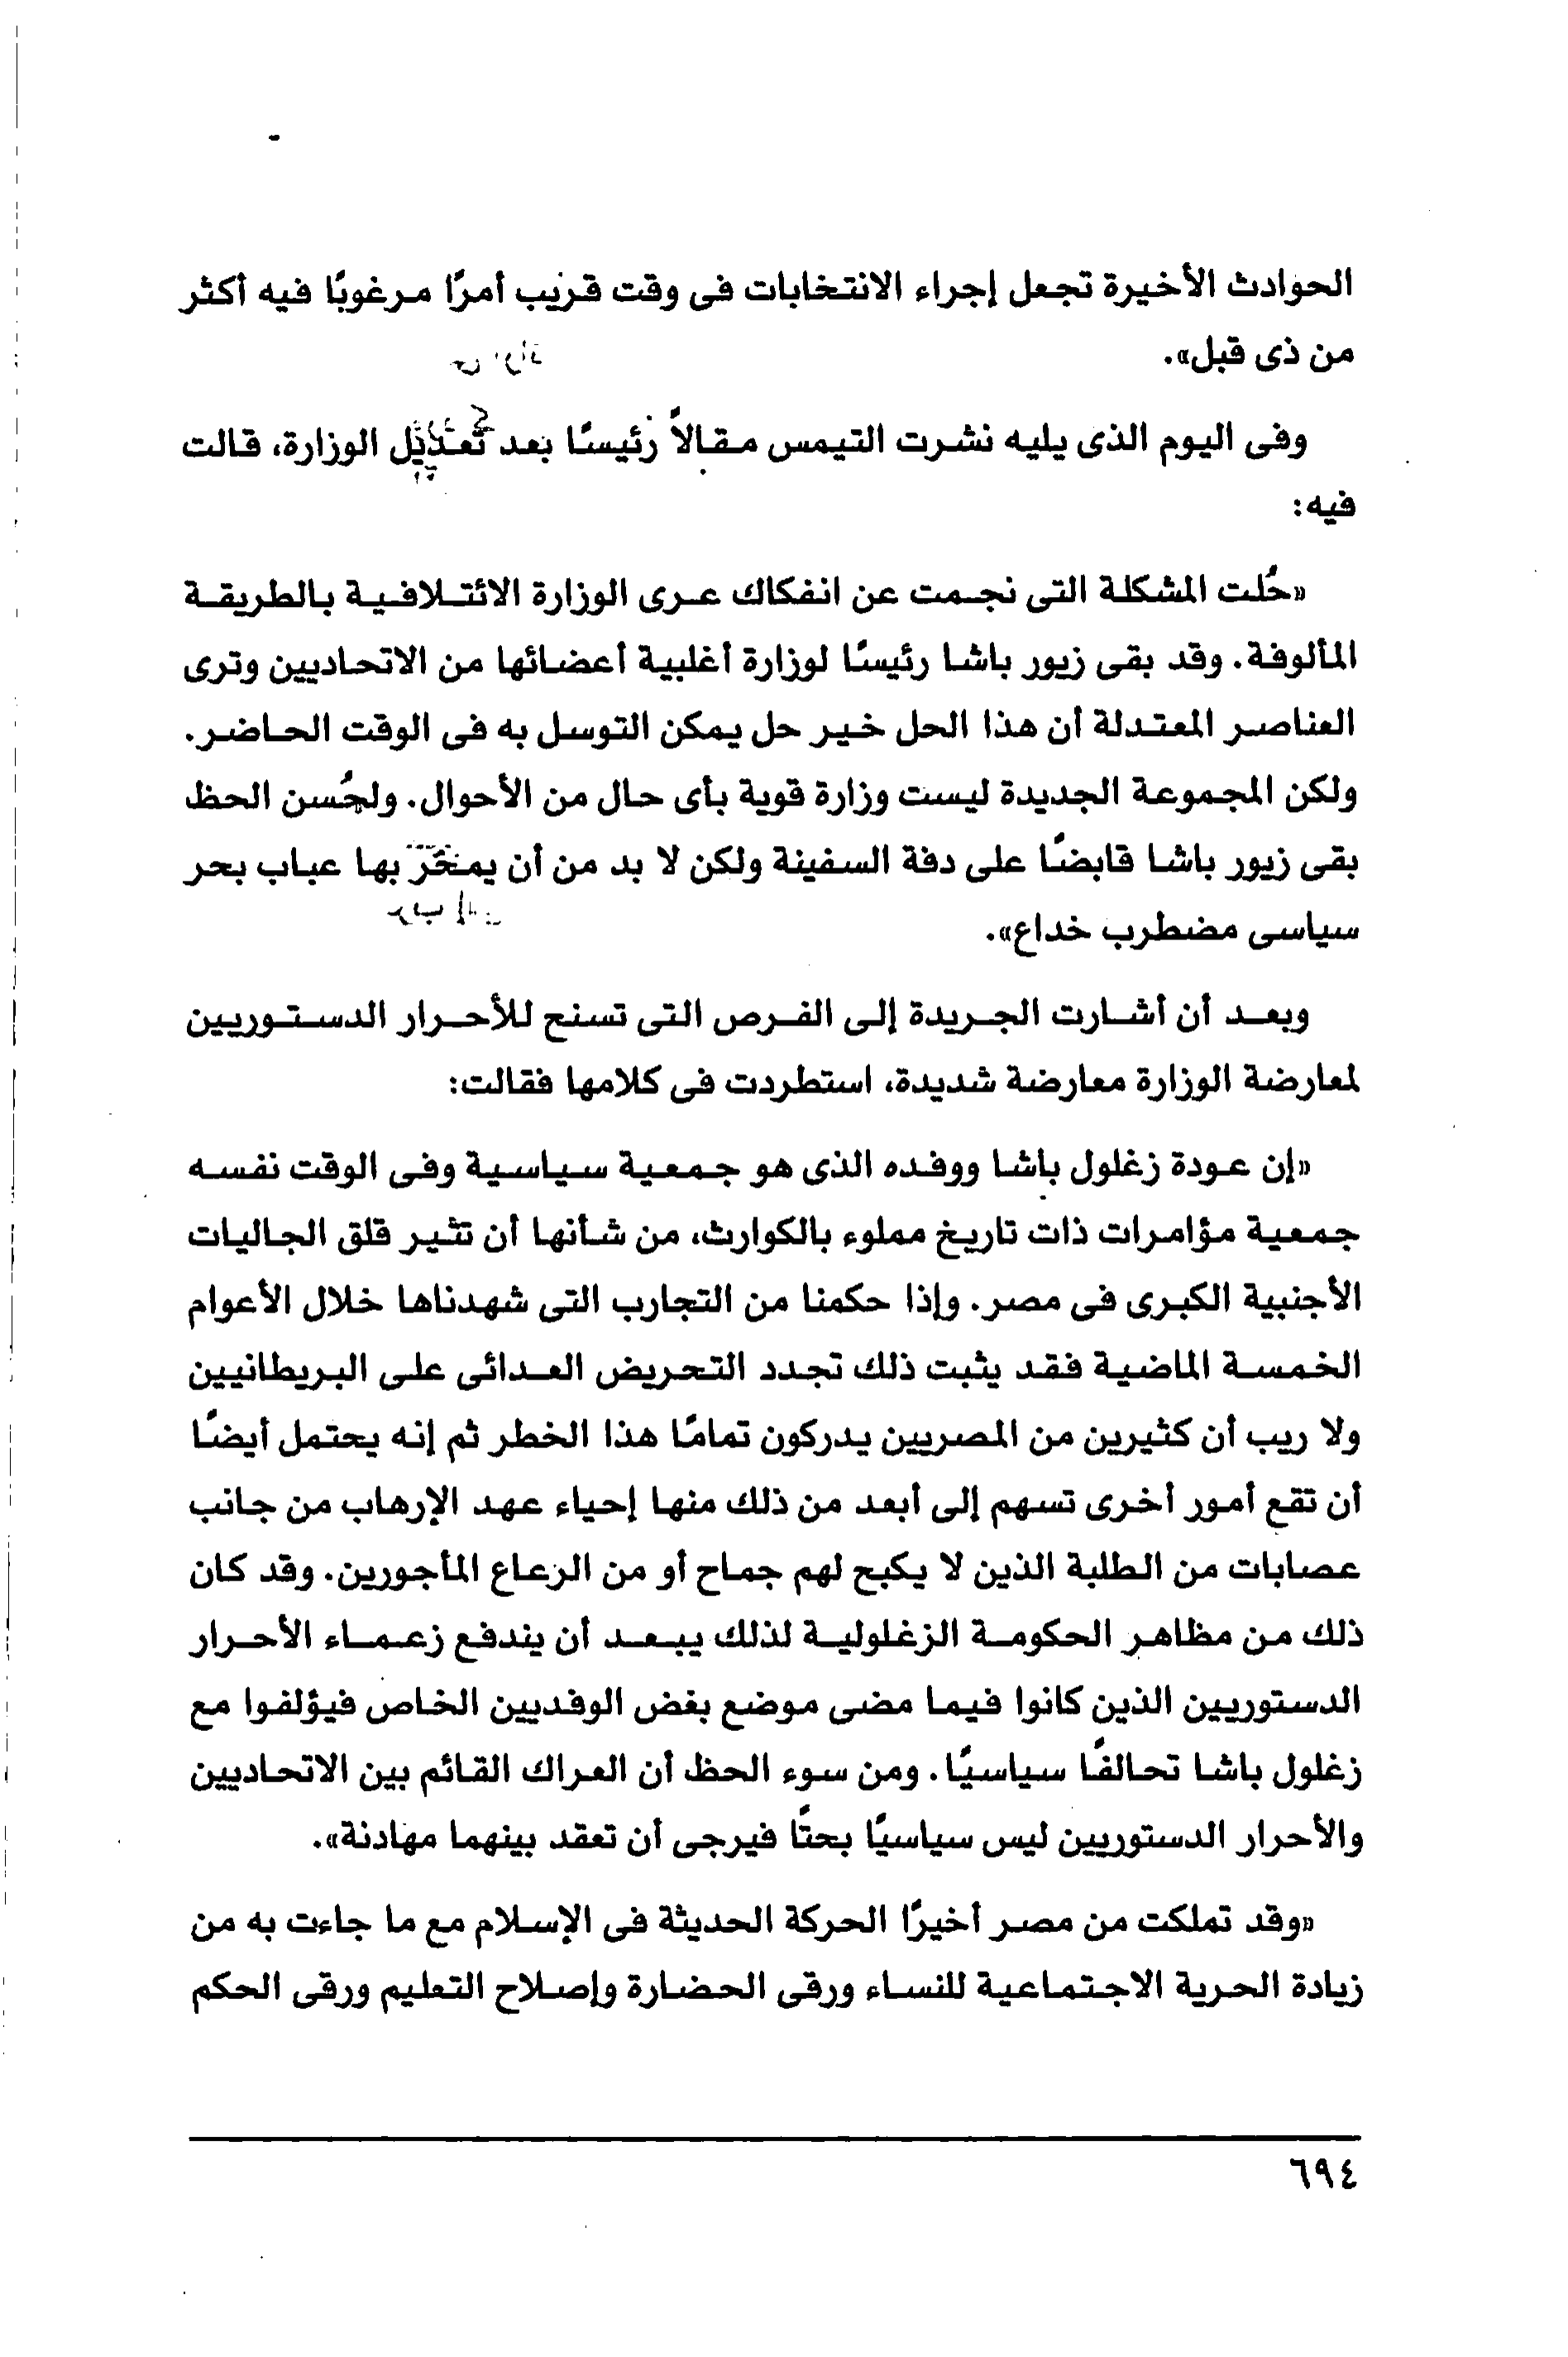 الحوادث الأخيرة تجعل إجراء الانتخابات فى وقت قريب أمرًا مرغوبًا فيه أكثر
من ذى قبل».
وفى اليوم الذى يليه نشرت التيمس مقالاً رئيسًا بعد تعديل الوزارة، قالت
فيه:
«حُلت المشكلة التى نجمت عن انفكاك عرى الوزارة الائتلافية بالطريقة
المألوفة. وقد بقى زيور باشا رئيسًا لوزارة أغلبية أعضائها من الاتحاديين وترى
العناصر المعتدلة أن هذا الحل خير حل يمكن التوسل به فى الوقت الحاضر.
ولكن المجموعة الجديدة ليست وزارة قوية بأى حال من الأحوال. ولحُسن الحظ
بقى زيور باشا قابضًا على دفة السفينة ولكن لا بد من أن يمخر بها عباب بحر
سياسى مضطرب خداع».
وبعد أن أشارت الجريدة إلى الفرص التى تسنح للأحرار الدستوريين
لمعارضة الوزارة معارضة شديدة، استطردت فى كلامها فقالت:
«إن عودة زغلول باشا ووفده الذى هو جمعية سياسية وفى الوقت نفسه
جمعية مؤامرات ذات تاريخ مملوء بالكوارث، من شأنها أن تثير قلق الجاليات
الأجنبية الكبرى فى مصر. وإذا حكمنا من التجارب التى شهدناها خلال الأعوام
الخمسة الماضية فقد يثبت ذلك تجدد التحريض العدائى على البريطانيين
ولا ريب أن كثيرين من المصريين يدركون تمامًا هذا الخطر ثم إنه يحتمل أيضًا
أن تقع أمور أخرى تسهم إلى أبعد من ذلك منها إحياء عهد الإرهاب من جانب
عصابات من الطلبة الذين لا يكبح لهم جماح أو من الرعاع المأجورين. وقد كان
ذلك من مظاهر الحكومة الزغلولية لذلك يبعد أن يندفع زعماء الأحرار
الدستوريين الذين كانوا فيما مضى موضع بغض الوفديين الخاص فيؤلفوا مع
زغلول باشا تحالفًا سياسيًا. ومن سوء الحظ أن العراك القائم بين الاتحاديين
والأحرار الدستوريين ليس سياسيًا بحتًا فيرجى أن تعقد بينهما مهادنة».
«وقد تملكت من مصر أخيرًا الحركة الحديثة فى الإسلام مع ما جاءت به من
زيادة الحرية الاجتماعية للنساء ورقى الحضارة وإصلاح التعليم ورقى الحكم
٦٩٤